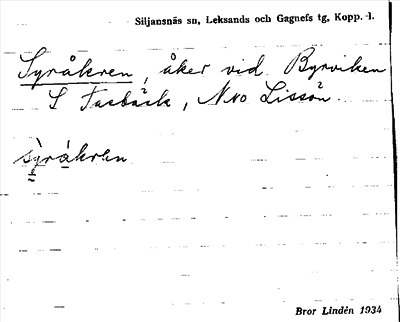 Siljansnäs sn, Leksands och Gagnefs tg, Kopp. l.
Syråkren, åker vid Byrviken
S Fasbäck, NNO Lissön
sỳrákren
Bror Lindén 1934